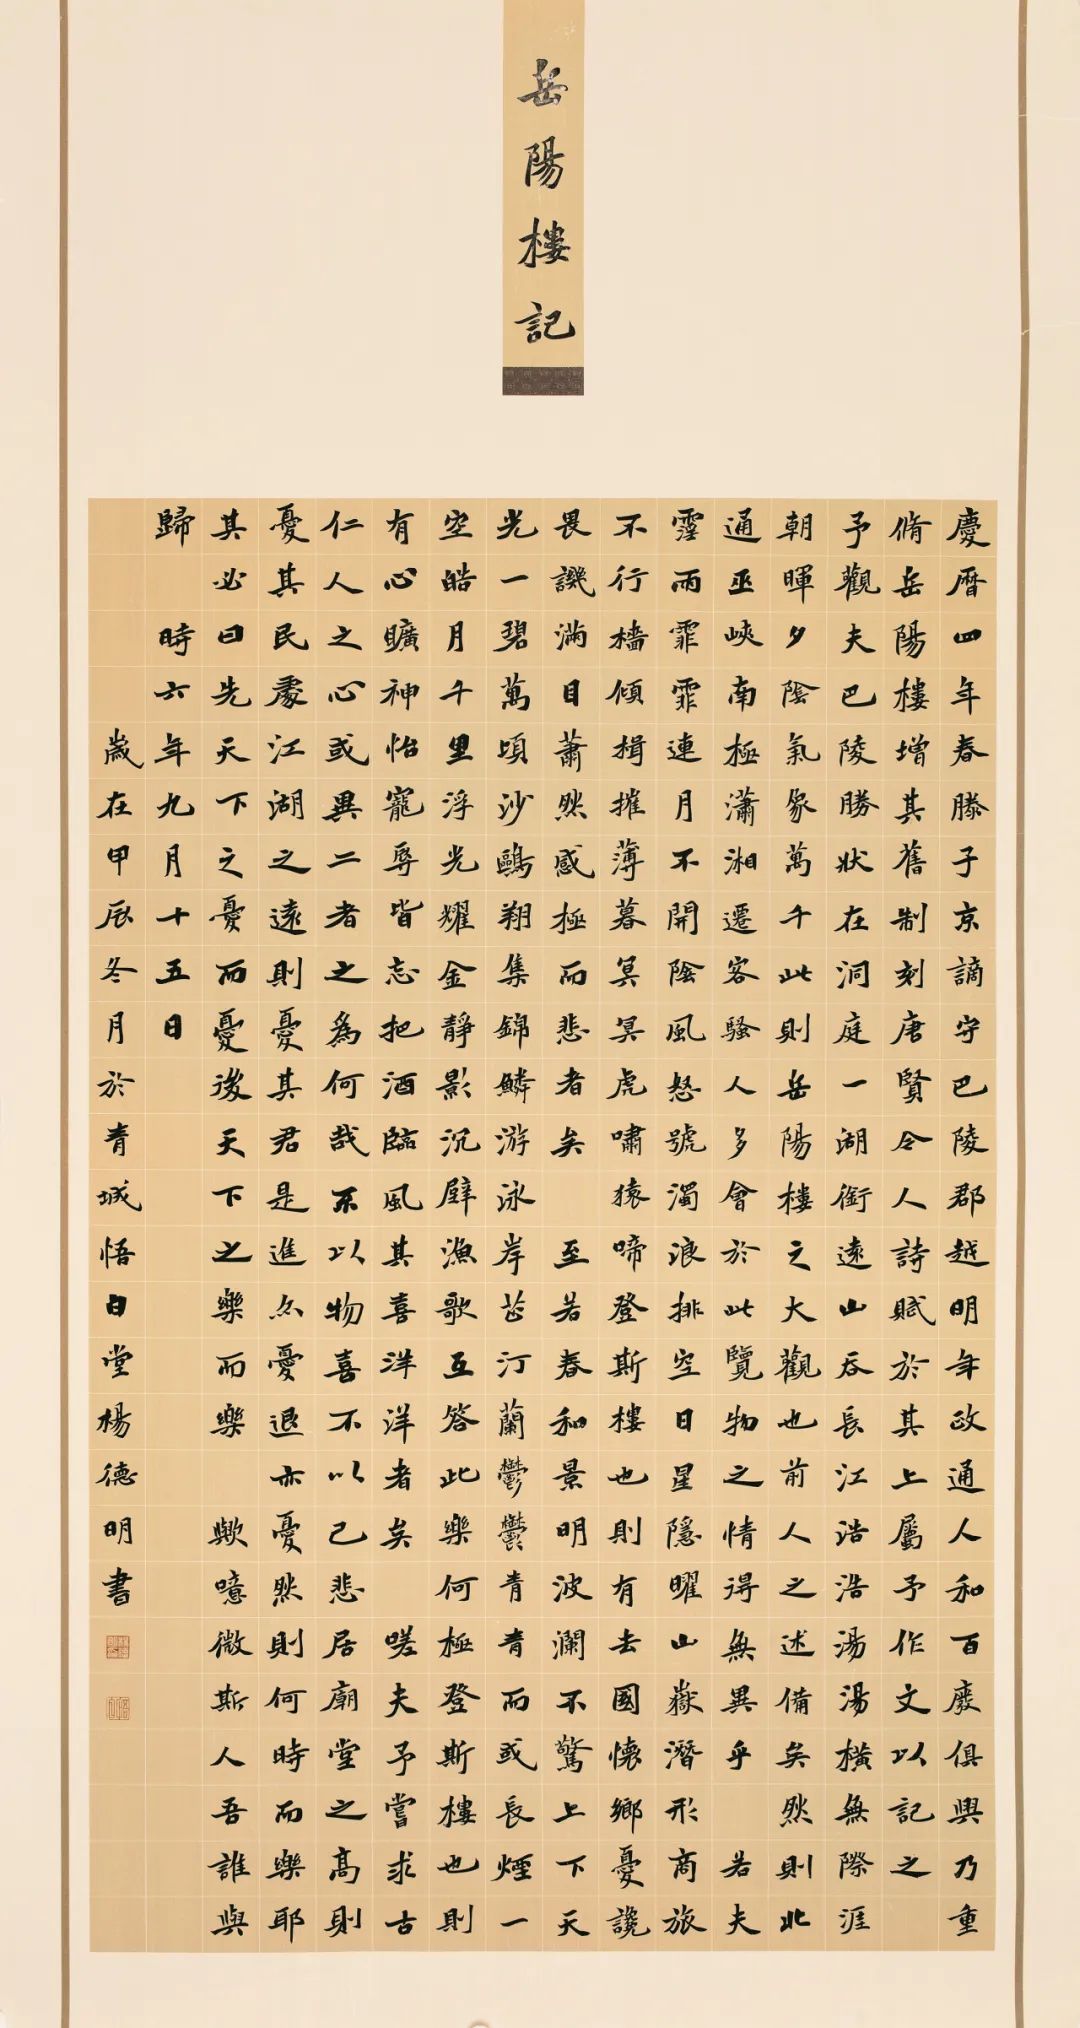 岳陽樓記
慶曆四年春滕子京謫守巴陵郡越明年政通人和百廢俱興乃重
脩岳陽樓增其舊制刻唐賢今人詩賦於其上屬予作文以記之
予觀夫巴陵勝狀在洞庭一湖銜遠山吞長江浩浩湯湯橫無際涯
朝暉夕陰氣象萬千此則岳陽樓之大觀也前人之述備矣然則北
通巫峽南極瀟湘遷客騷人多會於此覽物之情得無異乎 若夫
霪雨霏霏連月不開陰風怒號濁浪排空日星隱曜山嶽潛形商旅
不行檣傾楫摧薄暮冥冥虎嘯猿啼登斯樓也則有去國懷鄉憂讒
畏譏滿目蕭然感極而悲者矣 至若春和景明波瀾不驚上下天
光一碧萬頃沙鷗翔集錦鱗游泳岸芷汀蘭鬱鬱青青而或長煙一
空皓月千里浮光耀金靜影沉璧漁歌互答此樂何極登斯樓也則
有心曠神怡寵辱皆忘把酒臨風其喜洋洋者矣 嗟夫予嘗求古
仁人之心或異二者之為何哉不以物喜不以己悲居廟堂之高則
憂其民處江湖之遠則憂其君是進亦憂退亦憂然則何時而樂耶
其必曰先天下之憂而憂後天下之樂而樂 歟噫微斯人吾誰與
歸 時六年九月十五日
歲在甲辰冬月於青城悟白堂楊德明書